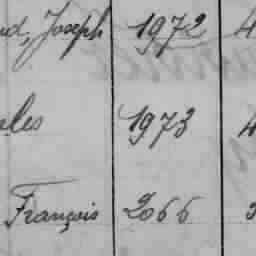 Joseph 1972 4
1973 4
François 2066